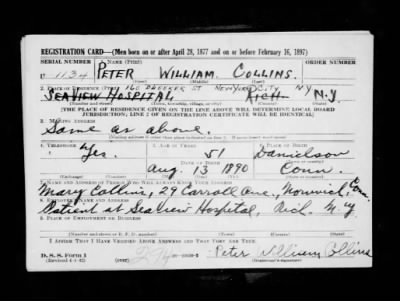 REGISTRATION CARD—(Men born on or after April 28, 1877 and on or before February 16, 1897)
SERIAL NUMBER 1. NAME (Print) ORDER NUMBER
U 1134 PETER WILLIAM COLLINS.
(First) (Middle) (Last)
2. PLACE OF RESIDENCE (Print) 160 BLEEKER ST NEW YORK CITY N.Y
SEAVIEW HOSPITAL N.Y.
[THE PLACE OF RESIDENCE GIVEN ON THE LINE ABOVE WILL DETERMINE LOCAL BOARD
JURISDICTION; LINE 2 OF REGISTRATION CERTIFICATE WILL BE IDENTICAL]
3. MAILING ADDRESS
Same as above.
4. TELEPHONE 5. AGE IN YEARS 6. PLACE OF BIRTH
Yes. 51 Danielson
DATE OF BIRTH
Aug. 13 1890 Conn.
7. NAME AND ADDRESS OF PERSON WHO WILL ALWAYS KNOW YOUR ADDRESS
Mary Collins, 29 Carroll Ave., Norwich, Conn.
8. EMPLOYER'S NAME AND ADDRESS
Patient at Seaview Hospital, Rich. N.Y
9. PLACE OF EMPLOYMENT OR BUSINESS
I AFFIRM THAT I HAVE VERIFIED ABOVE ANSWERS AND THAT THEY ARE TRUE.
D. S. S. Form 1 Peter William Collins
(Revised 4-1-42) (Registrant's signature)